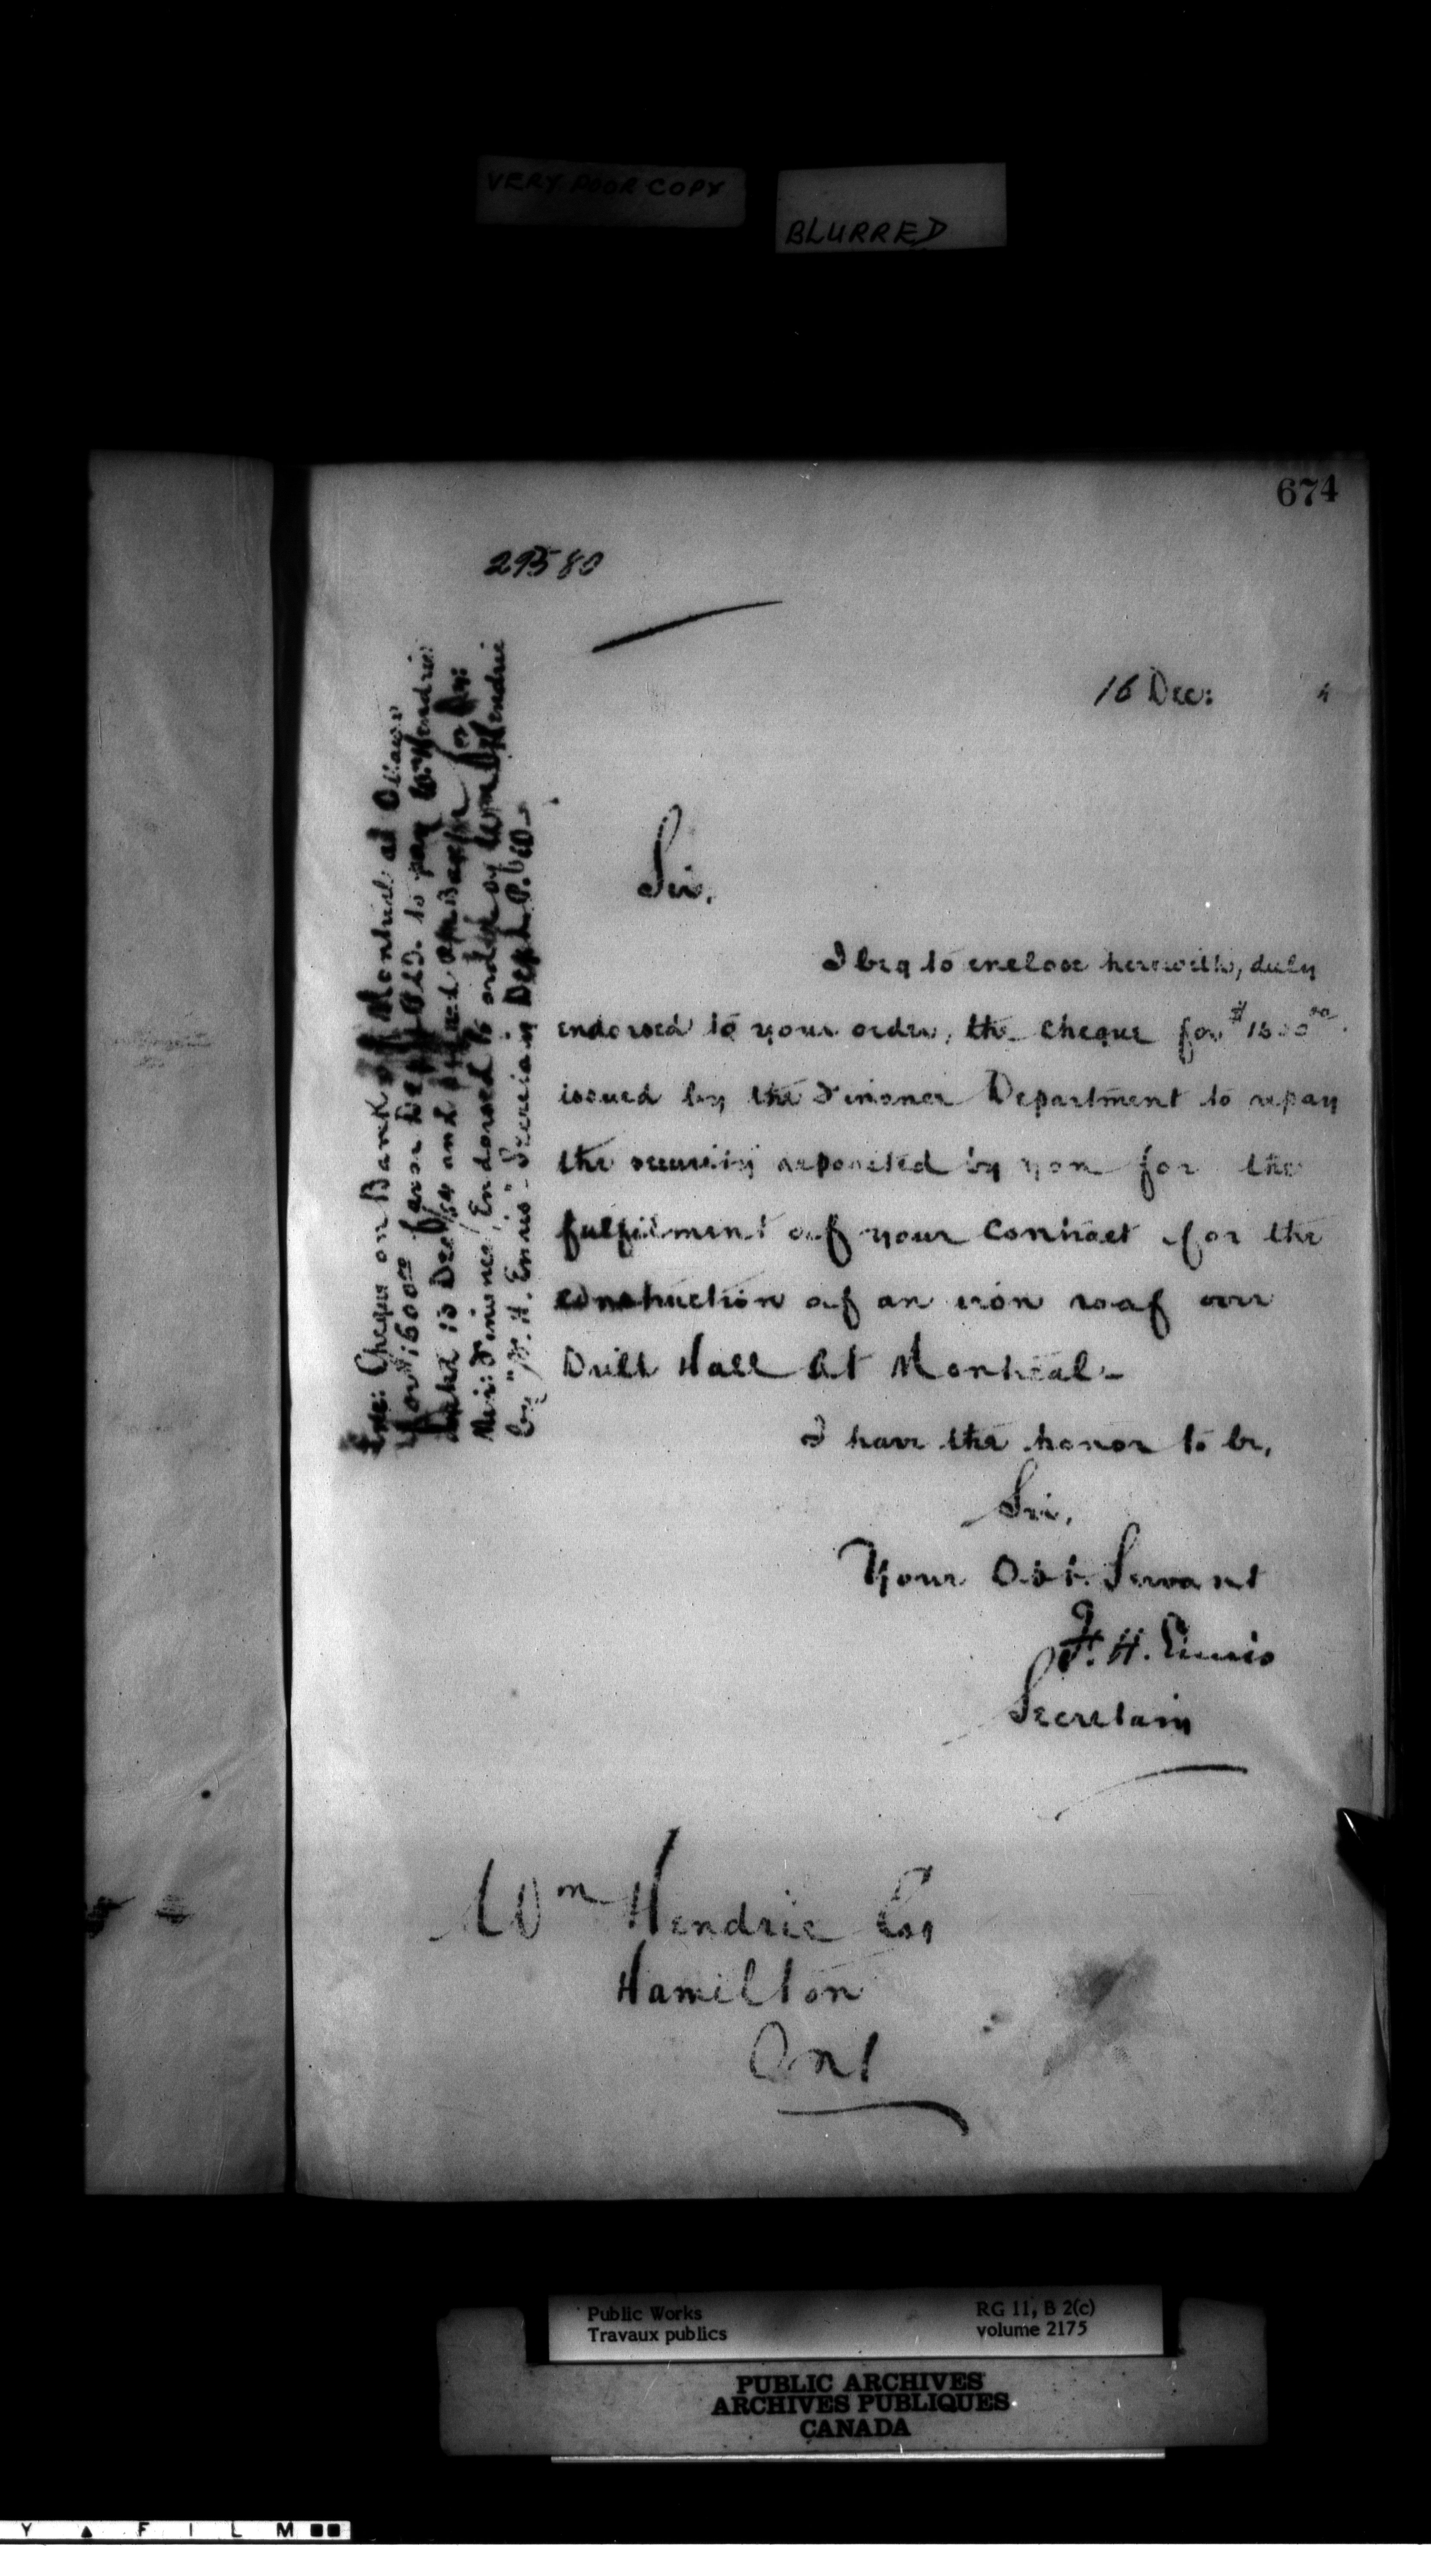 VERY POOR COPY
BLURRED
674
29580
16 Dec: 4
Sir,
I beg to enclose herewith, duly
endorsed to your order, the cheque for
issued by the Finance Department to repay
the security deposited by you for the
fulfilment of your contract for the
construction of an iron roof over
Drill Hall at Montreal-
I have the honor to be,
Sir,
Your Obt. Servant
F. H. Ennis
Secretary
Wm Hendrie Esq
Hamilton
Ont
Inc: Cheque on Bank of Montreal at Ottawa
for $1600.00 favor Dept P.W. to pay W. Hendrie
dated 13 Dec/84 and
Min: Finance/Endorsed to order of Wm Hendrie
by "F. H. Ennis" Secretary Dept P.W-
Public Works
Travaux publics
RG 11, B 2(c)
volume 2175
PUBLIC ARCHIVES
ARCHIVES PUBLIQUES
CANADA
Y ▲ F I L M